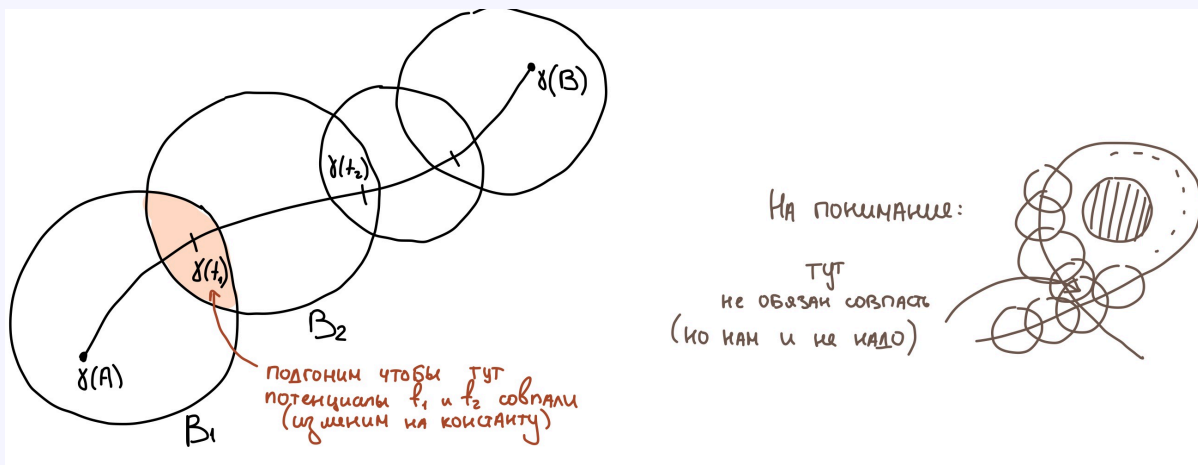 γ(B)
γ(t₂)
γ(t₁)
γ(A)
B₂
B₁
подгоним чтобы тут
потенциалы f₁ и f₂ совпали
(изменим на константу)
На понимание:
тут
не обязан совпасть
(но нам и не надо)